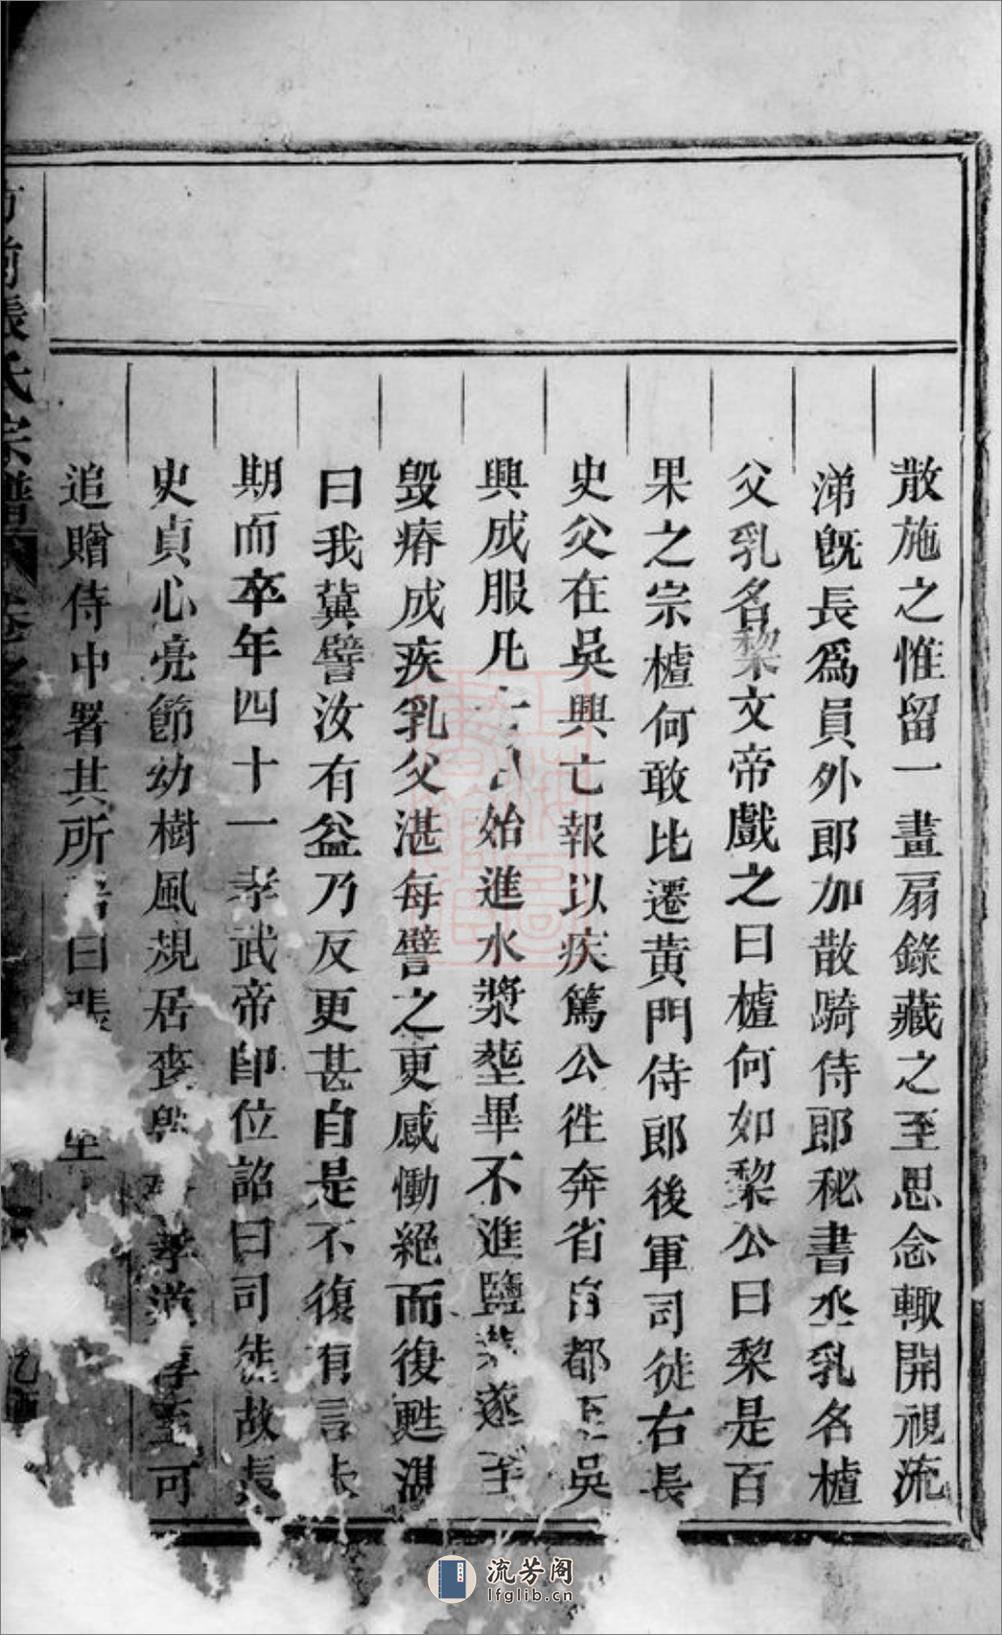 散施之惟留一畫扇錄藏之至思念輙開視流
涕旣長爲員外郎加散騎侍郎秘書丞乳名樝
父乳名棃文帝戲之曰樝何如棃公曰棃是百
果之宗樝何敢比遷黃門侍郎後軍司徒右長
史父在吳興亡報以疾篤公徃奔省自都至吳
興成服凡 始進水漿塟畢不進鹽 遂
毁瘠成疾乳父湛每譬之更感慟絕而復甦湛
曰我冀譬汝有益乃反更甚自是不復有言未
期而卒年四十一孝武帝卽位詔曰司徒故張
史貞心亮節幼樹風規居喪 孝道淳至可
追贈侍中署其所 曰張
前張氏宗譜 卷之
流芳阁
lfglib.cn